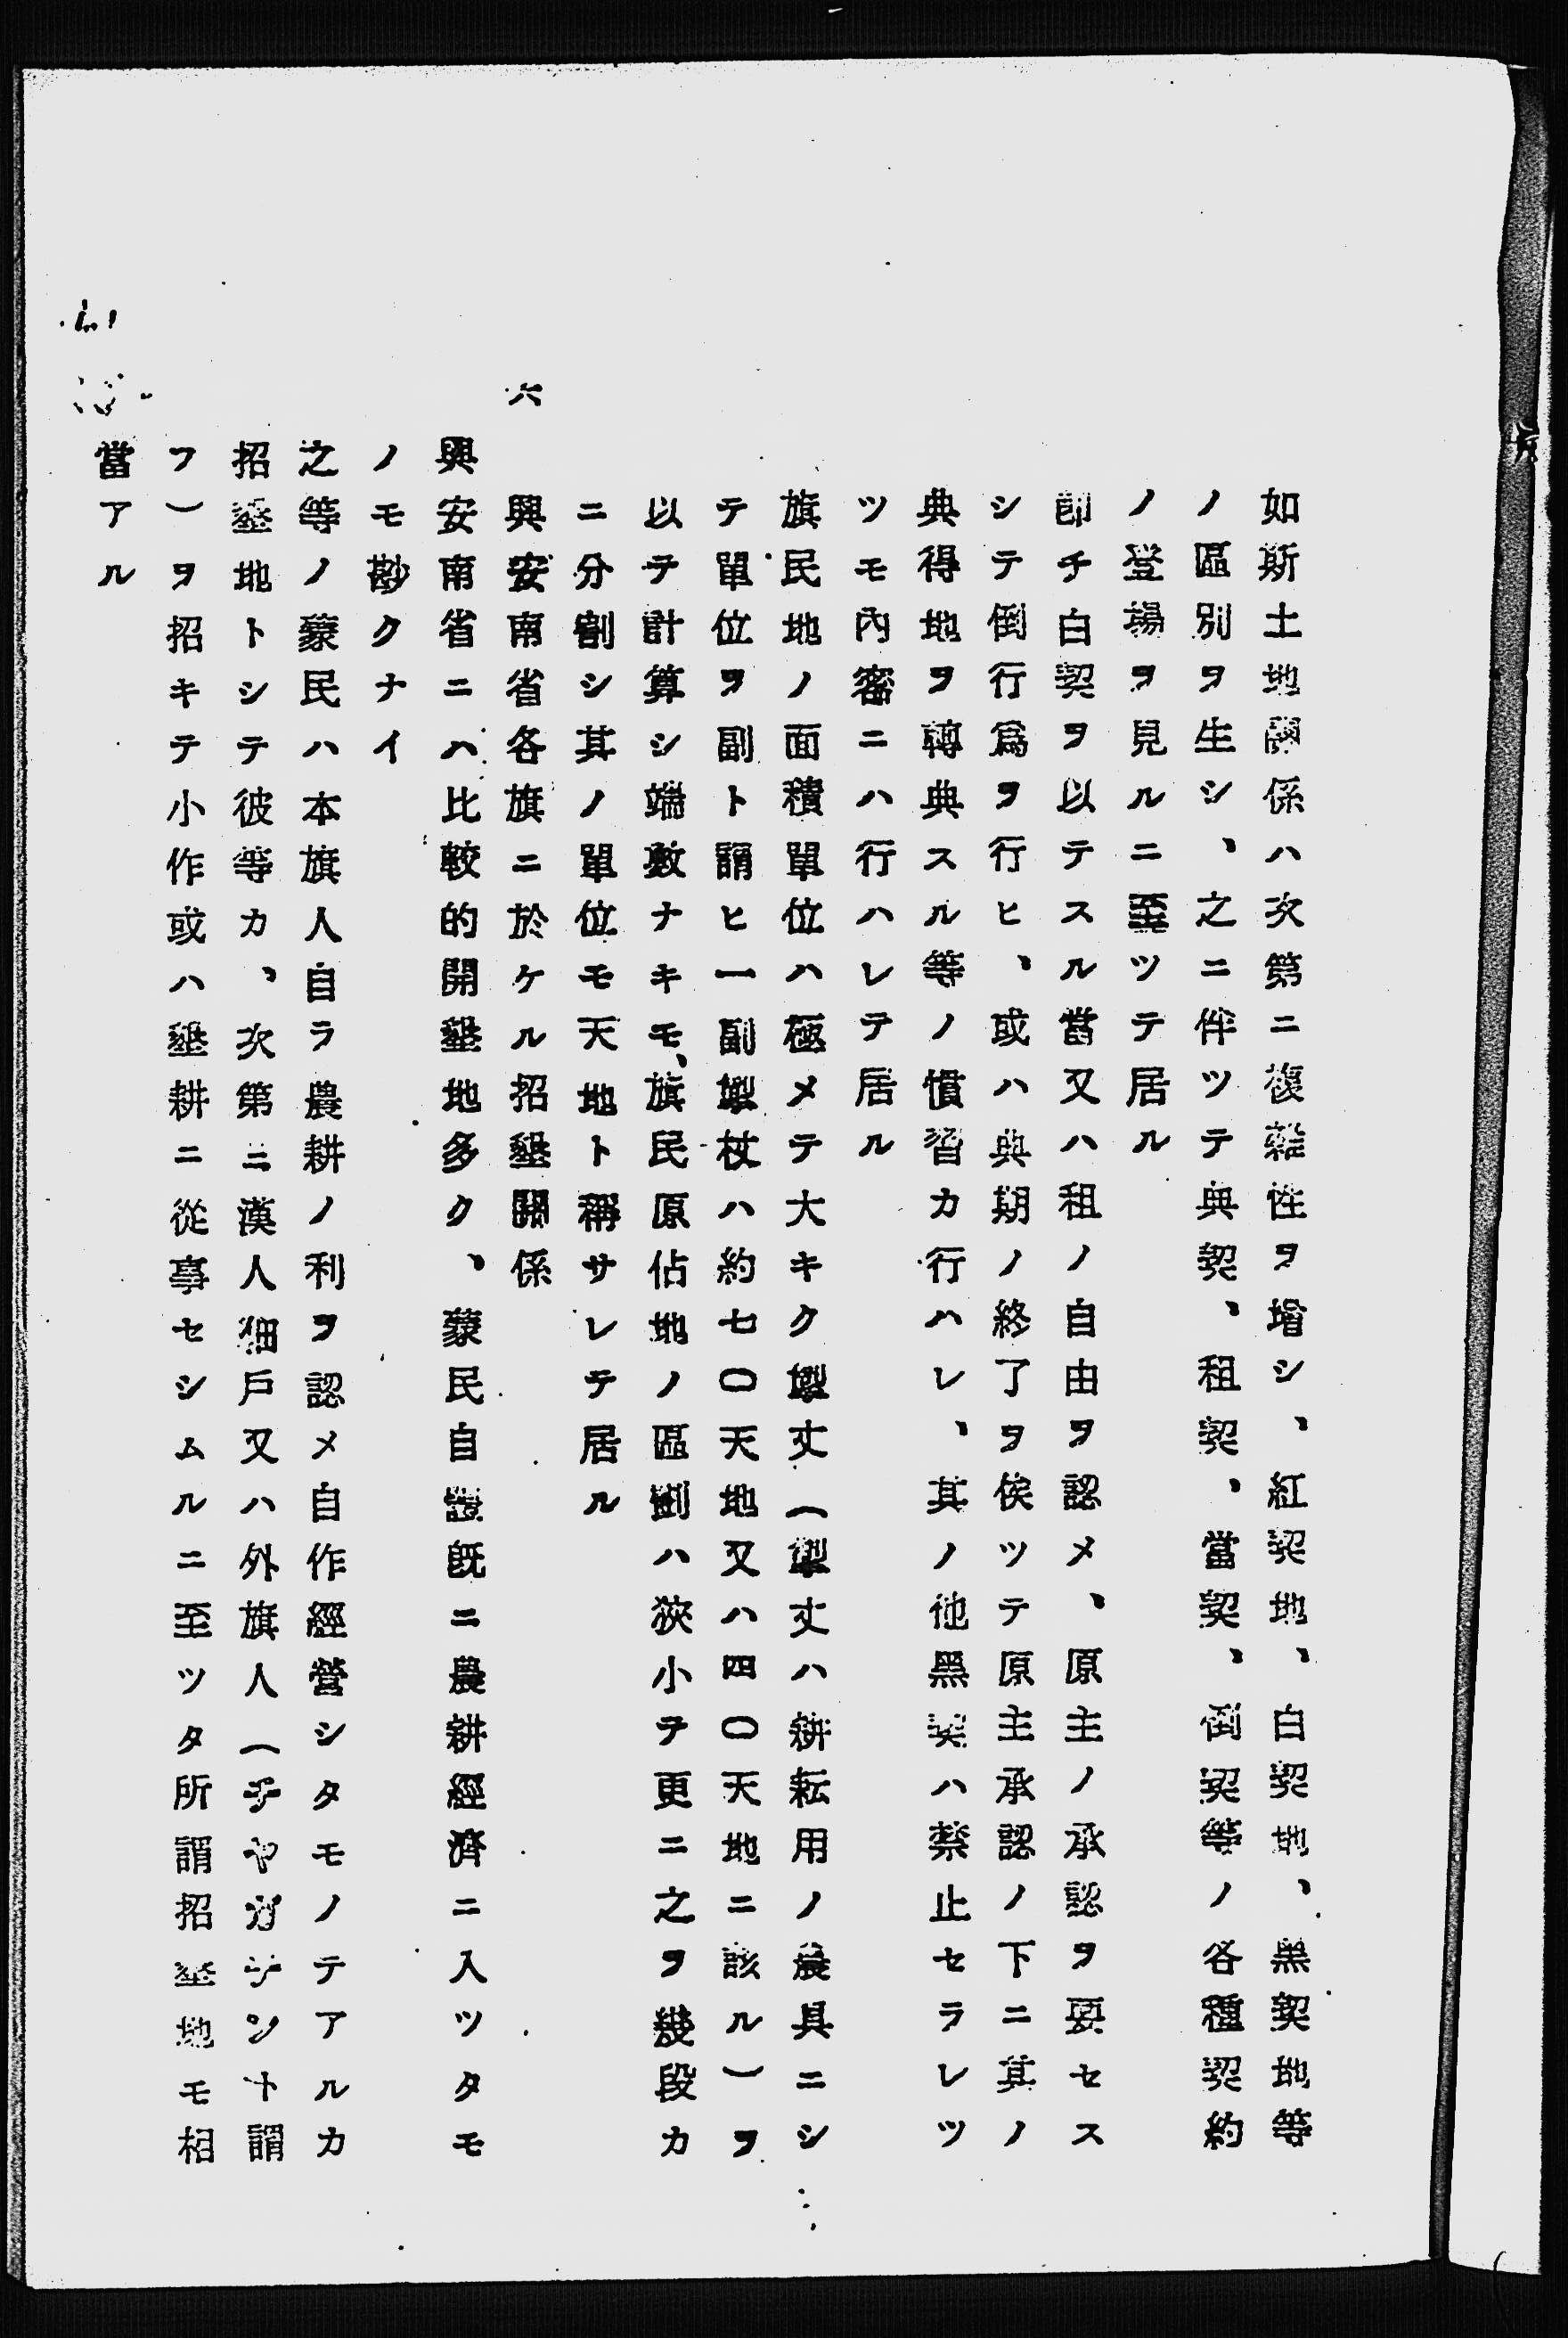 如斯土地關係ハ次第ニ複雜性ヲ增シ、紅契地、白契地、黑契地等
ノ區別ヲ生シ、之ニ伴ツテ典契、租契、當契、倒契等ノ各種契約
ノ登場ヲ見ルニ至ツテ居ル
卽チ白契ヲ以テスル當又ハ租ノ自由ヲ認メ、原主ノ承認ヲ要セス
シテ倒行爲ヲ行ヒ、或ハ典期ノ終了ヲ俟ツテ原主承認ノ下ニ其ノ
典得地ヲ轉典スル等ノ慣習カ行ハレ、其ノ他黑契ハ禁止セラレツ
ツモ內密ニハ行ハレテ居ル
旗民地ノ面積單位ハ極メテ大キク犂丈（犂丈ハ耕耘用ノ農具ニシ
テ單位ヲ副ト謂ヒ一副犂杖ハ約七〇天地又ハ四〇天地ニ該ル）ヲ
以テ計算シ端數ナキモ、旗民原佔地ノ區劃ハ狹小テ更ニ之ヲ幾段カ
ニ分割シ其ノ單位モ天地ト稱サレテ居ル
六　興安南省各旗ニ於ケル招墾關係
興安南省ニハ比較的開墾地多ク、蒙民自體旣ニ農耕經濟ニ入ツタモ
ノモ尠クナイ
之等ノ蒙民ハ本旗人自ラ農耕ノ利ヲ認メ自作經營シタモノテアルカ
招墾地トシテ彼等カ、次第ニ漢人佃戶又ハ外旗人（ヤガンント謂
フ）ヲ招キテ小作或ハ墾耕ニ從事セシムルニ至ツタ所謂招墾地モ相
當アル